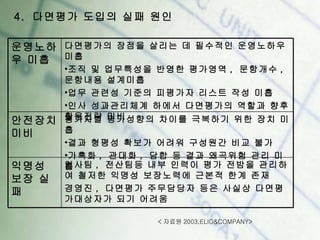 4. 다면평가 도입의 실패 원인
운영노하
우 미흡
다면평가의 장점을 살리는 데 필수적인 운영노하우
미흡
•조직 및 업무특성을 반영한 평가영역 , 문항개수 ,
문항내용 설계미흡
•업무 관련성 기준의 피평가자 리스트 작성 미흡
•인사 성과관리체계 하에서 다면평가의 역할과 향후
활용전략 미비
안전장치
미비
평가자별 평가성향의 차이를 극복하기 위한 장치 미
흡
•결과 형평성 확보가 어려워 구성원간 비교 불가
•가혹화 , 관대화 , 담합 등 결과 왜곡위험 관리 미
익명성
보장 실
패
인사팀 , 전산팀등 내부 인력이 평가 전방을 관리하
여 철저한 익명성 보장노력에 근본적 한계 존재
경영진 , 다면평가 주무담당자 등은 사실상 다면평
가대상자가 되기 어려움
< 자료원 2003,ELIO&COMPANY>